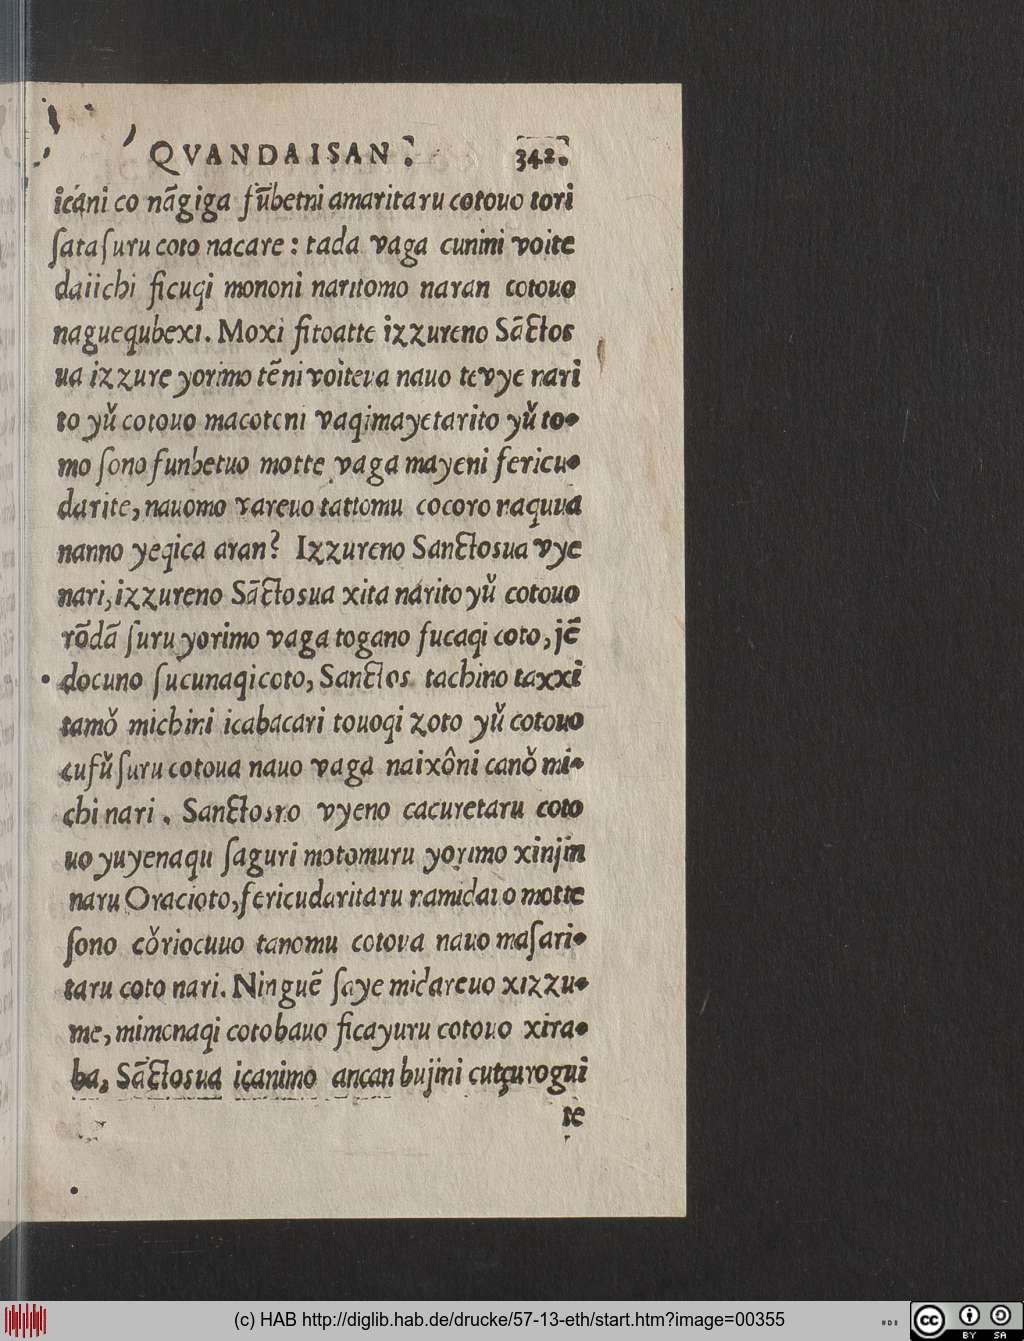 QVANDAISAN.
342.
icani co nãgiga fũbetni amaritaru cotouo tori
ſata ſuru coto nacare : tada vaga cunini voite
daiichi ficuqi mononi naritomo naran cotouo
naguequbexi. Moxi fitoatte izzureno Sãctos
ua izzure yorimo tẽni voiteua nauo tevye nari
to yǔ cotouo macoteni vaqimayetarito yǔ to-
mo ſono funbetuo motte vaga mayeni fericu-
darite, nauomo vareuo tattomu cocoro naquua
nanno yeqica aran? Izzureno Sanctosua vye
nari, izzureno Sãctosua xita nárito yǔ cotouo
rõdã ſuru yorimo vaga togano fucaqi coto, jẽ
docuno ſucunaqicoto, Sanctos tachino taxxi
tamǒ michini icabacari touoqi zoto yǔ cotouo
cufǔ ſuru cotoua nauo vaga naixôni canǒ mi-
chi nari. Sanctosno vyeno cacuretaru coto
uo yuyenaqu ſaguri motomuru yorimo xinjin
naru Oracioto, fericudaritaru namidauo motte
ſono cǒriocuuo tanomu cotoua nauo maſari-
taru coto nari. Ninguẽ ſaye midareuo xizzu-
me, mimonaqi cotobauo ficayuru cotouo xira-
ba, Sãctosua icanimo ancan bujini cutçurogui
te
(c) HAB http://diglib.hab.de/drucke/57-13-eth/start.htm?image=00355
cc BY SA